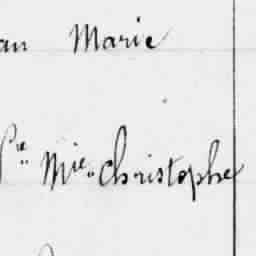 an Marie
Pre Mie Christophe